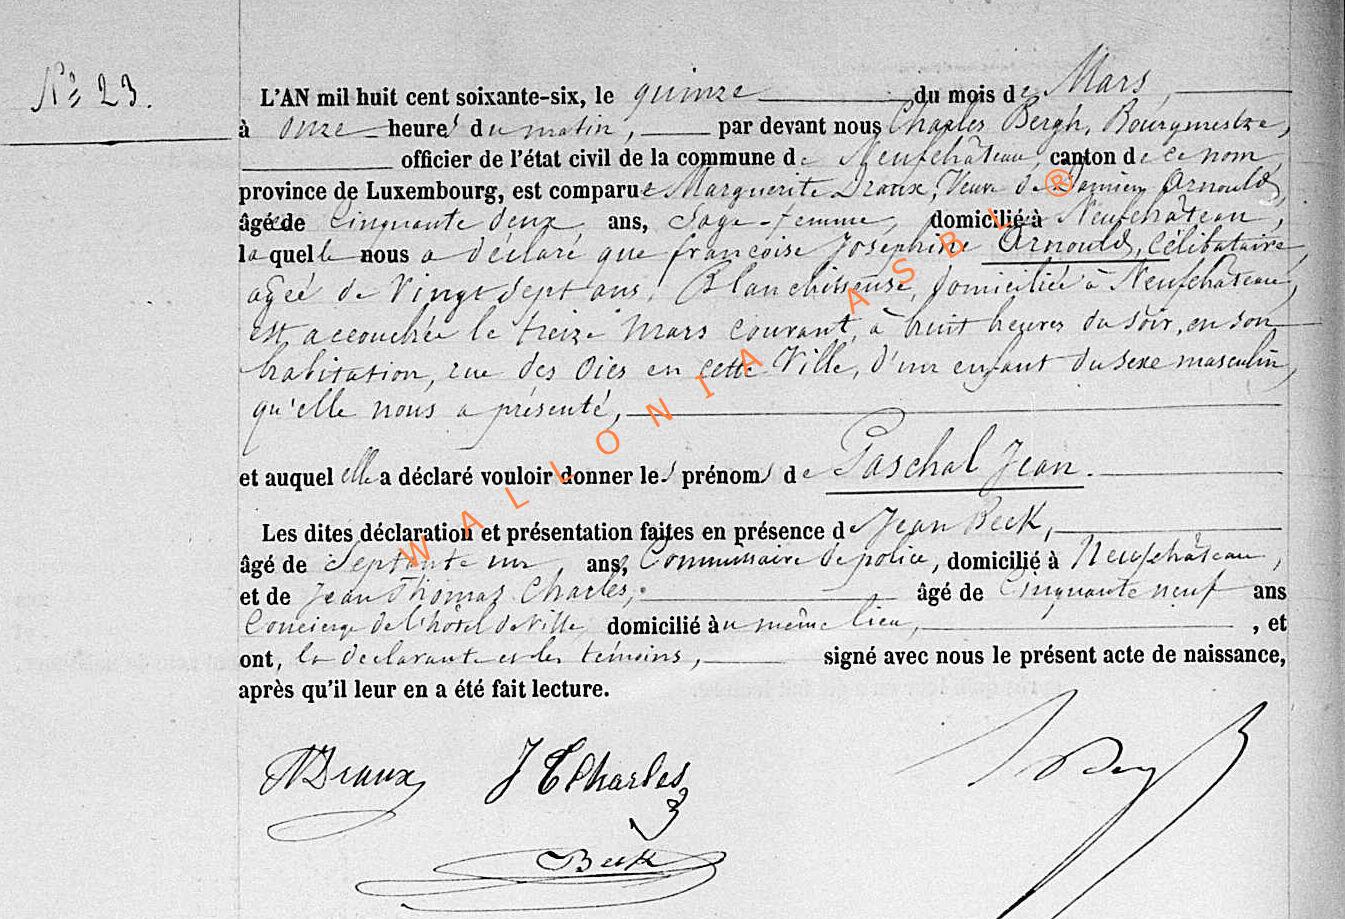 Nº 23.
L'AN mil huit cent soixante-six, le quinze du mois de Mars,
à onze heures du matin, par devant nous Charles Bergh, Bourgmestre,
officier de l'état civil de la commune de Neufchâteau, canton de ce nom,
province de Luxembourg, est comparue Marguerite Draux, Veuve de Damien Arnould,
âgée de Cinquante deux ans, Sage-femme, domiciliée à Neufchâteau,
laquelle nous a déclaré que françoise Joséphine Arnould, Célibataire,
agée de Vingt Sept ans, Blanchisseuse, domiciliée à Neufchâteau,
est accouchée le treize Mars courant, à huit heures du soir, en son
habitation, rue des Oies en cette Ville, d'un enfant du sexe masculin,
qu'elle nous a présenté,
et auquel elle a déclaré vouloir donner les prénoms de Paschal Jean.
Les dites déclaration et présentation faites en présence de Jean Beck,
âgé de Septante un, ans, Commissaire de police, domicilié à Neufchâteau,
et de Jean Thomas Charles, âgé de Cinquante neuf ans
Concierge de l'hôtel de Ville, domicilié au même lieu, , et
ont, la déclarante et les témoins, signé avec nous le présent acte de naissance,
après qu'il leur en a été fait lecture.
MDraux JTCharles
Beck
WALLONIA ASBL ®